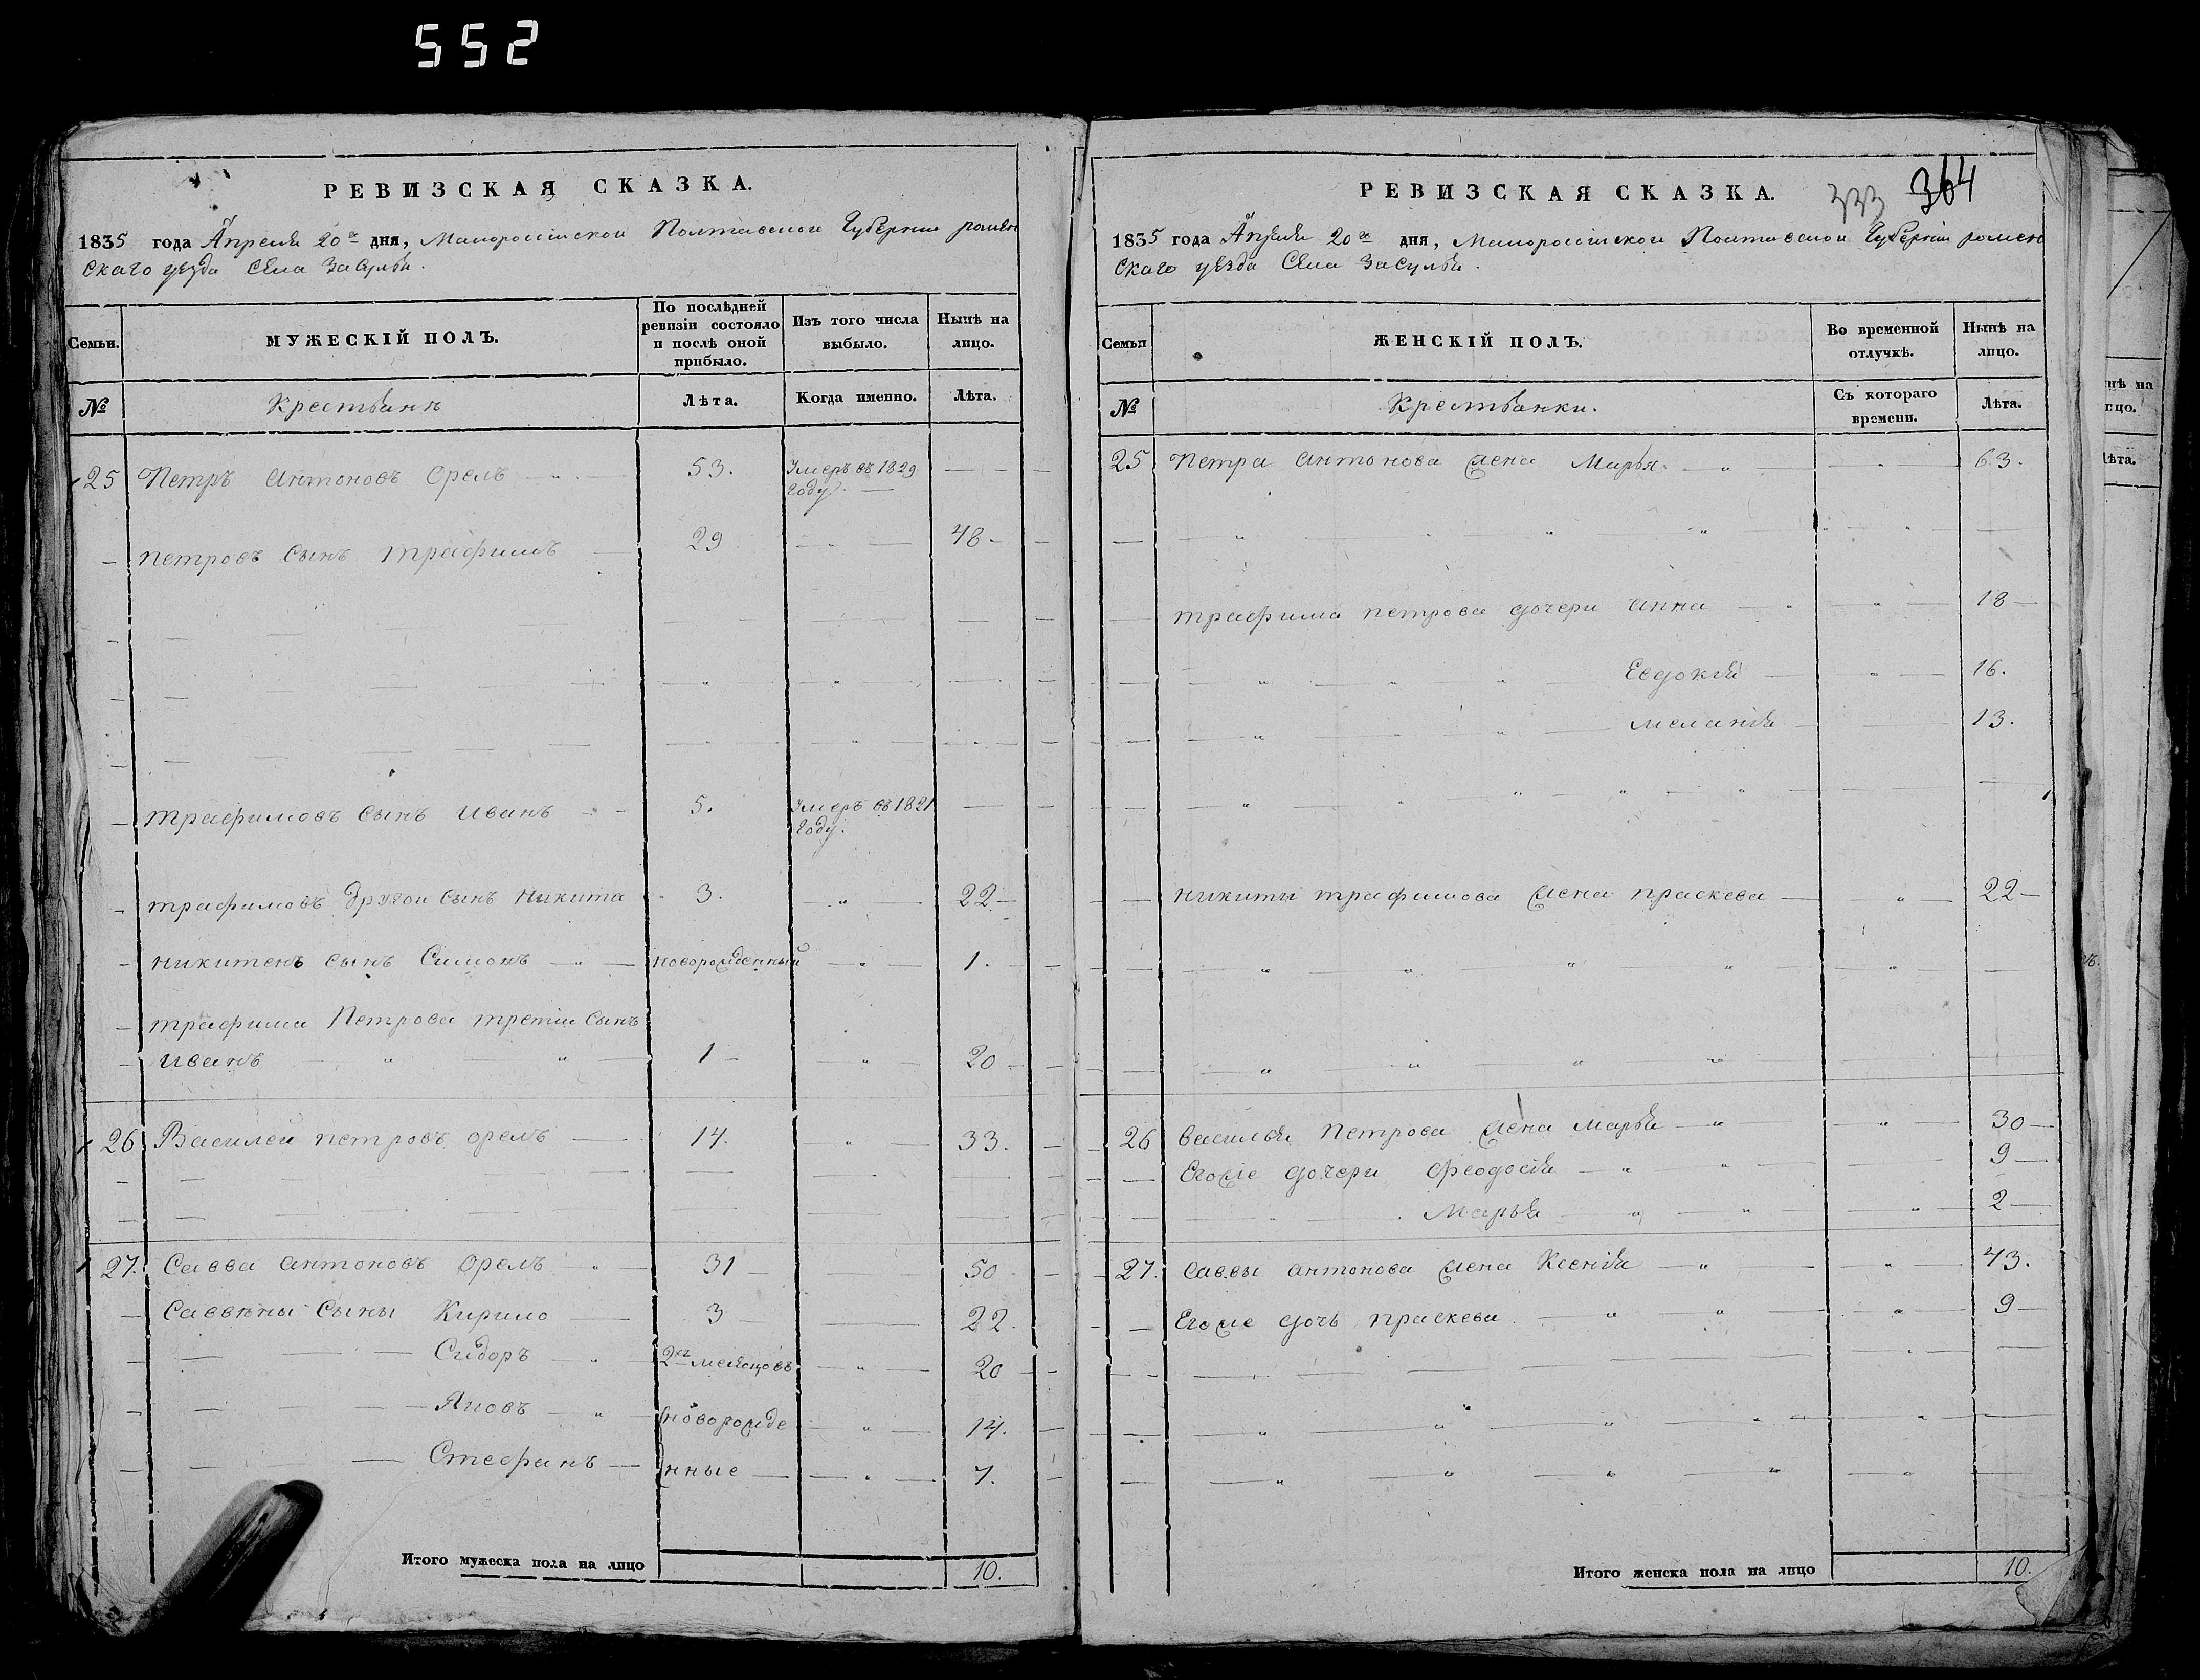 552
РЕВИЗСКАЯ СКАЗКА.
1835 года Апреля 20го дня, Малороссийской Полтавской Губернии ромен
скаго уезда Села Засулья.
Семьи.
МУЖЕСКІЙ ПОЛЪ.
По послѣдней ревизіи состояло и послѣ оной прибыло.
Изъ того числа выбыло.
Нынѣ на лицо.
№
Крестьянъ
Лѣта.
Когда именно.
Лѣта.
25 Петръ антоновъ Орелъ 53. Умеръ въ 1829
году.
петровъ сынъ трафимъ 29 48
трафимовъ сынъ иванъ 5. Умеръ въ 1821
году.
трафимовъ другой сынъ никита 3. 22
никитенъ сынъ Симонъ новорожденный 1.
трафима Петрова третій сынъ
иванъ 1 20
26 Василей петровъ орелъ 14. 33.
27. Савва антоновъ Орелъ 31 50
Саввины сыны Кирило 3 22.
Сидоръ 2хъ месяцовъ 20
Яковъ новорожде 14.
Стефанъ нные 7.
Итого мужеска пола на лицо 10.
РЕВИЗСКАЯ СКАЗКА.
333 364
1835 года Апреля 20го дня, Малороссийской Полтавской Губерніи ромен
скаго уезда Села Засулья.
Семьи
ЖЕНСКІЙ ПОЛЪ.
Во временной отлучкѣ.
Нынѣ на лицо.
№
Крестьянки.
Съ котораго времени.
Лѣта.
25 Петра антонова жена Марья 63.
трафима петрова дочери анна 18
Евдокія 16.
меланія 13.
никиты трафимова жена праскева 22
26 василья Петрова жена марья 30
Егоже дочери Феодосія 9
Марья 2
27. саввы антонова жена Ксенія 43.
Егоже дочь праскева 9
Итого женска пола на лицо 10.
нѣ на
цо.
ѣта.